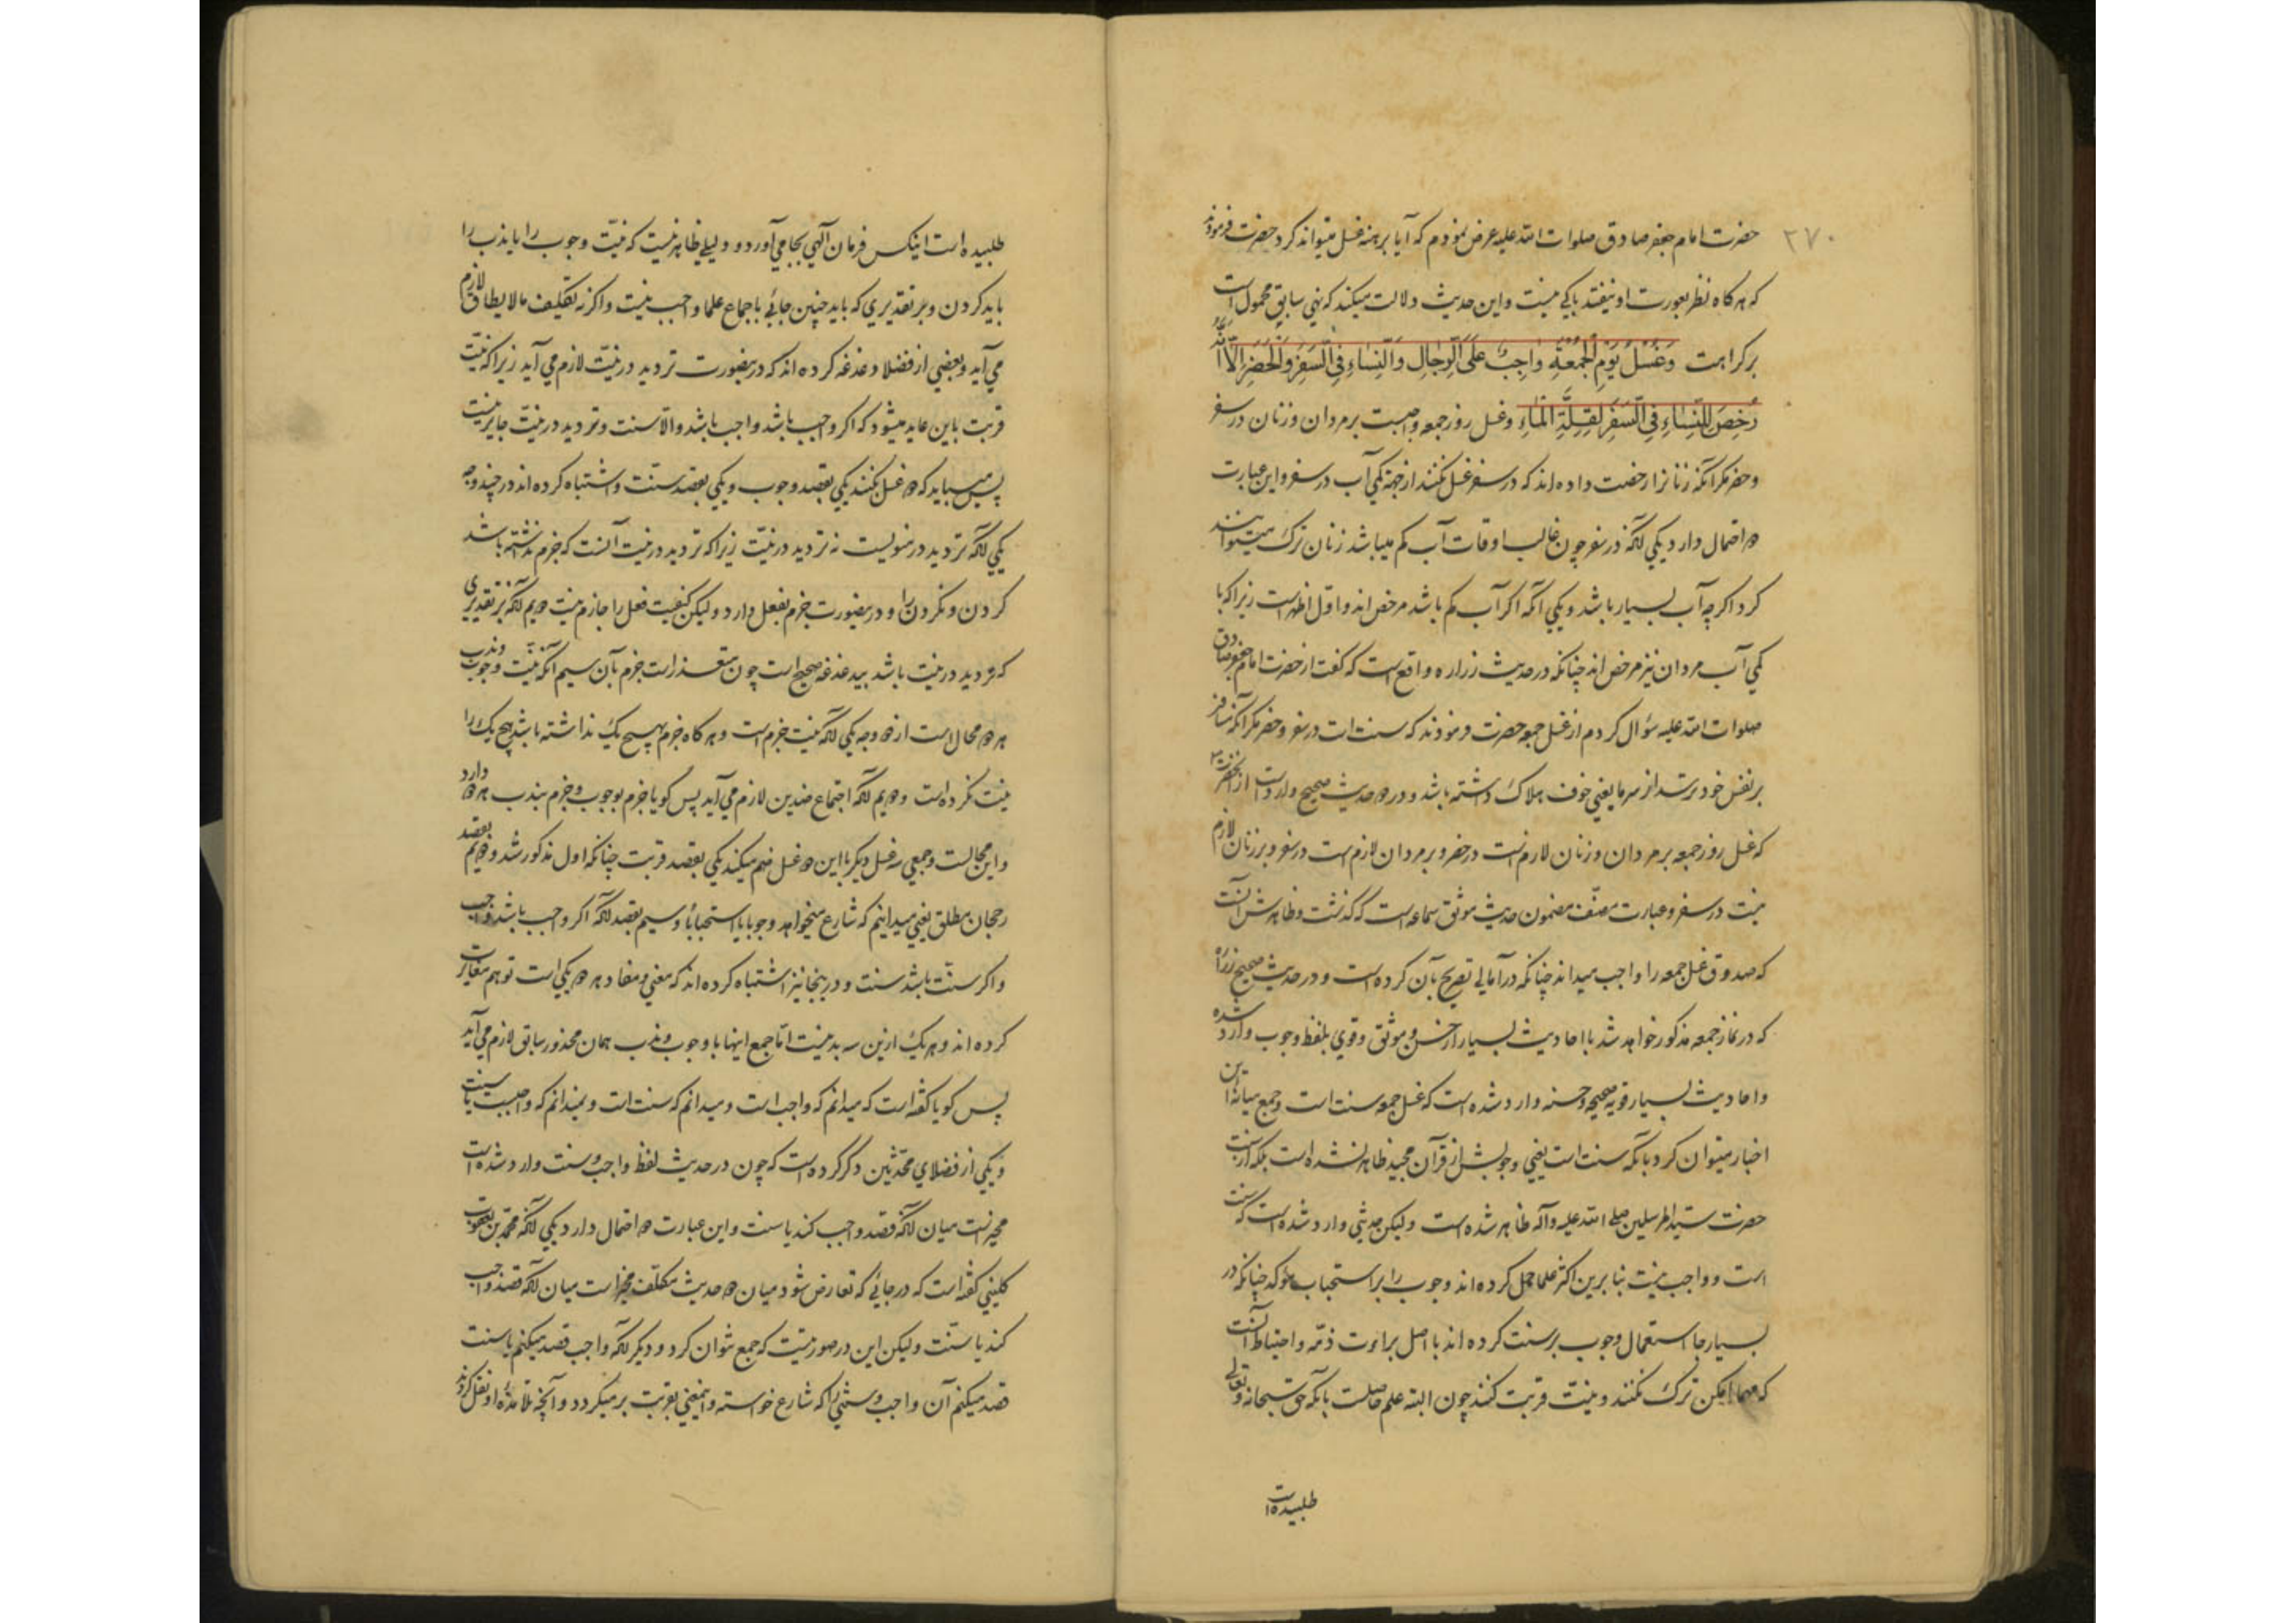 ۲۷۰
حضرت امام جعفر صادق صلوات الله علیه عرض نمودم که آیا برهنه غسل میتواند کرد حضرت فرمودند
که هر کاه نظر بعورت او نیفتد باکی نیست و این حدیث دلالت میکند که نهی سابق محمول است
بر کراهت وَغُسْلُ یَوْمِ الْجُمُعَةِ وَاجِبٌ عَلَی الرِّجَالِ وَالنِّسَاءِ فِی السَّفَرِ وَالْحَضَرِ اِلَّا اَنَّهُ
رُخِّصَ لِلنِّسَاءِ فِی السَّفَرِ لِقِلَّةِ الْمَاءِ وغسل روز جمعه واجبست بر مردان و زنان در سفر
و حضر مکر آنکه زنانرا رخصت داده اند که در سفر غسل نکنند از جهة کمی آب در سفر و این عبارت
دو احتمال دارد یکی آنکه در سفر چون غالب اوقات آب کم میباشد زنان ترک میتوانند
کرد اکر چه آب بسیار باشد و یکی آنکه اکر آب کم باشد مرخص اند و اول اظهر است زیرا که با
کمی آب مردان نیز مرخص اند چنانکه در حدیث زراره واقع است که کفت از حضرت امام جعفر صادق
صلوات الله علیه سؤال کردم از غسل جمعه حضرت فرمودند که سنت است در سفر و حضر مکر آنکه مسافر
بر نفس خود ترسد از سرما یعنی خوف هلاک داشته باشد و در دو حدیث صحیح وارد است از آنحضرت
که غسل روز جمعه بر مردان و زنان لازم است در حضر و بر مردان لازم است در سفر و بر زنان لازم
نیست در سفر و عبارت مصنف مضمون حدیث موثق سماعه است که کذشت و ظاهرش آنست
که صدوق غسل جمعه را واجب میداند چنانکه در امالی تصریح بآن کرده است و در حدیث صحیح زراره
که در نماز جمعه مذکور خواهد شد با احادیث بسیار از حسن و موثق و قوی بلفظ وجوب وارد شده
و احادیث بسیار قویه صحیحه و حسنه وارد شده است که غسل جمعه سنت است و جمع میانه این
اخبار میتوان کرد بآنکه سنت است یعنی وجوبش از قرآن مجید ظاهر نشده است بلکه از سنت
حضرت سید المرسلین صلی الله علیه وآله ظاهر شده است ولیکن حدیثی وارد شده است که سنت
است و واجب نیست بنابرین اکثر علما حمل کرده اند وجوب را بر استحباب مؤکد چنانکه در
بسیار جا استعمال وجوب بر سنت کرده اند با اصل براءت ذمه و احتیاط آنست
که مهما امکن ترک نکنند و نیت قربت کنند چون البته علم حاصلست بآنکه حق سبحانه و تعالی
طلبیده است
طلبیده است اینکس فرمان الهی بجا می آورد و دلیلی ظاهر نیست که نیت وجوب را یا ندب را
باید کردن و بر تقدیری که باید چنین جائی باجماع علما واجب نیست و اکر نه تکلیف ما لا یطاق لازم
می آید و بعضی از فضلا دغدغه کرده اند که درینصورت تردید در نیت لازم می آید زیرا که نیت
قربت باین عاید میشود که اکر واجب باشد واجب باشد والا سنت و تردید در نیت جایز نیست
پس میباید که دو غسل بکنند یکی بقصد وجوب و یکی بقصد سنت و اشتباه کرده اند در چند وجه
یکی آنکه تردید در منویست نه تردید در نیت زیرا که تردید در نیت آنست که جزم نداشته باشد
کردن و نکردن را و درینصورت جزم بفعل دارد ولیکن کیفیت فعل را جازم نیست دویم آنکه بر تقدیری
که تردید در نیت باشد بیدغدغه صحیح است چون متعذر است جزم بآن سیم آنکه نیت وجوب و ندب
هر دو محال است از دو وجه یکی آنکه نیت جزم است و هر کاه جزم بهیچ یک نداشته باشد هیچ یک را
نیت نکرده است و دویم آنکه اجتماع ضدین لازم می آید پس کویا جزم بوجوب و جزم بندب هر دو دارد
و این محالست و جمعی سه غسل دیکر با این دو غسل ضم میکنند یکی بقصد قربت چنانکه اول مذکور شد و دویم بقصد
رجحان مطلق یعنی میدانیم که شارع میخواهد وجوبا یا استحبابا و سیم بقصد آنکه اکر واجب باشد واجب
و اکر سنت باشد سنت و درینجا نیز اشتباه کرده اند که معنی و مفاد هر دو یکی است توهم مغایرت
کرده اند و هر یک ازین سه بد نیست اما جمع اینها با وجوب و ندب همان محذور سابق لازم می آید
پس کویا کفته است که میدانم که واجب است و میدانم که سنت است و نمیدانم که واجبست یا سنت
و یکی از فضلای محدثین ذکر کرده است که چون در حدیث لفظ واجب و سنت وارد شده است
مخیر است میان آنکه قصد واجب کند یا سنت و این عبارت دو احتمال دارد یکی آنکه محمد بن یعقوب
کلینی کفته است که در جائی که تعارض شود میان دو حدیث مکلف مخیر است میان آنکه قصد واجب
کند یا سنت ولیکن این در صورتیست که جمع نتوان کرد و دیکر آنکه واجب قصد میکنم یا سنت
قصد میکنم آن واجب و سنتی را که شارع خواسته و اینمعنی بقربت بر میکردد و آنچه تلامذه او نقل کردند